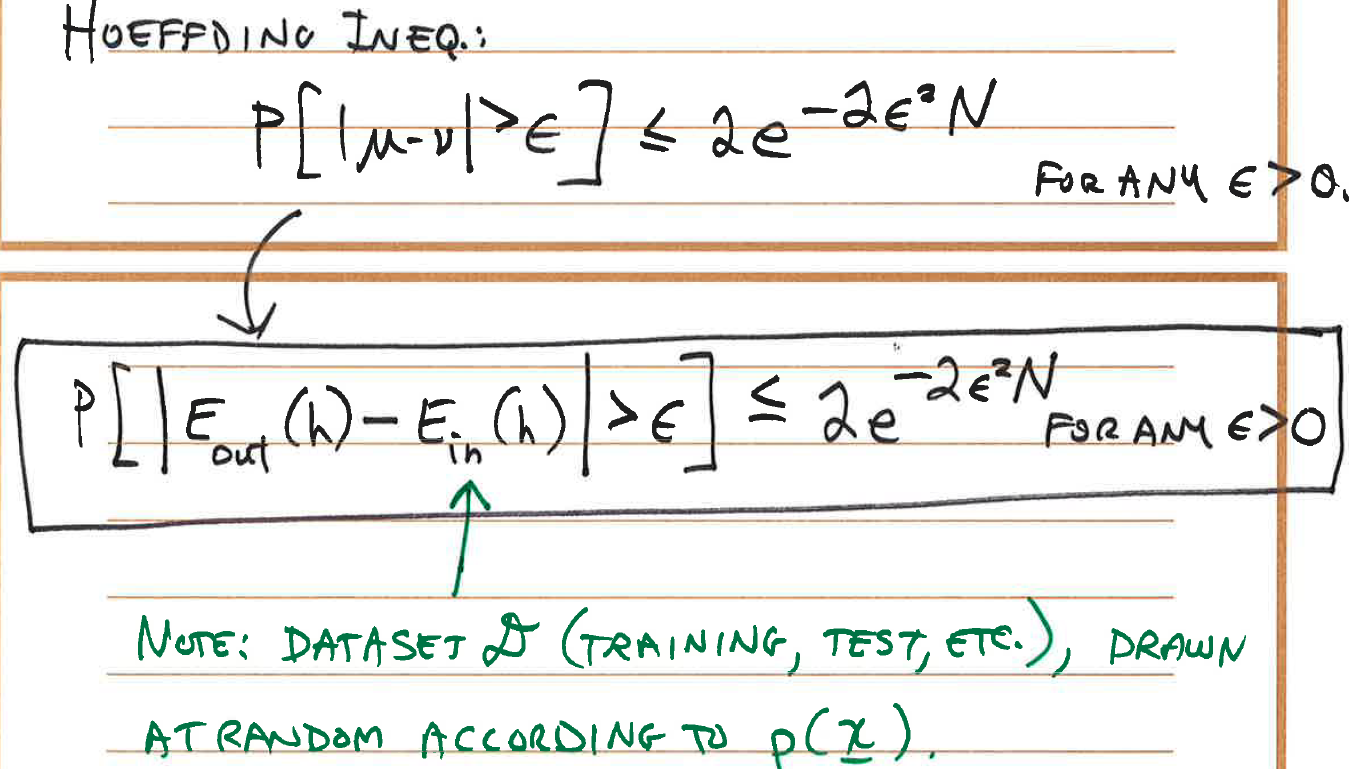 HOEFFDING INEQ.:
P[|μ-ν|>ϵ] ≤ 2e^{-2ϵ²N}
FOR ANY ϵ>0.
P[|E_out(h)-E_in(h)|>ϵ] ≤ 2e^{-2ϵ²N} FOR ANY ϵ>0
NOTE: DATASET 𝒟 (TRAINING, TEST, ETC.), DRAWN
AT RANDOM ACCORDING TO p(x̲).